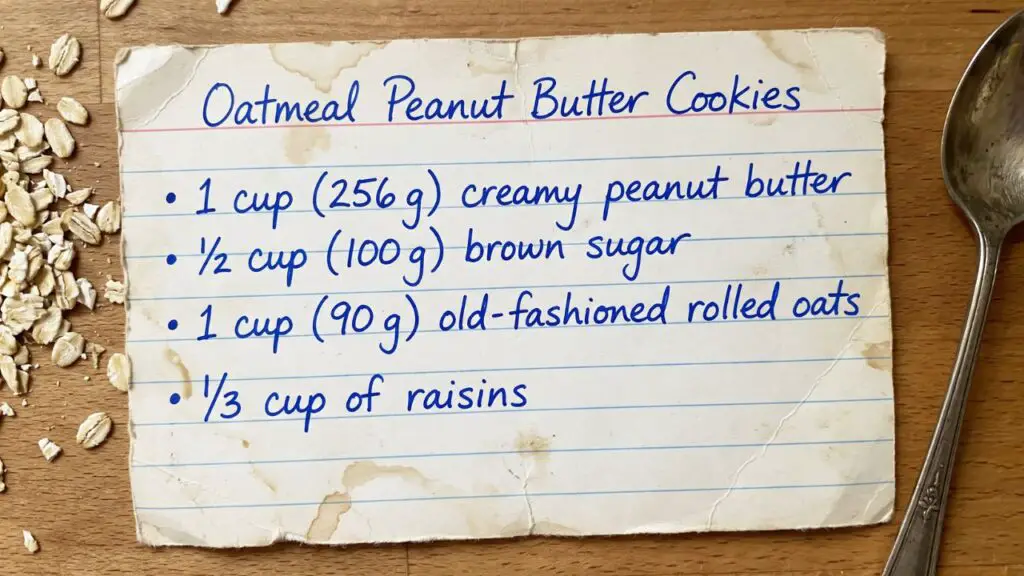 Oatmeal Peanut Butter Cookies
• 1 cup (256 g) creamy peanut butter
• 1/2 cup (100 g) brown sugar
• 1 cup (90 g) old-fashioned rolled oats
• 1/3 cup of raisins